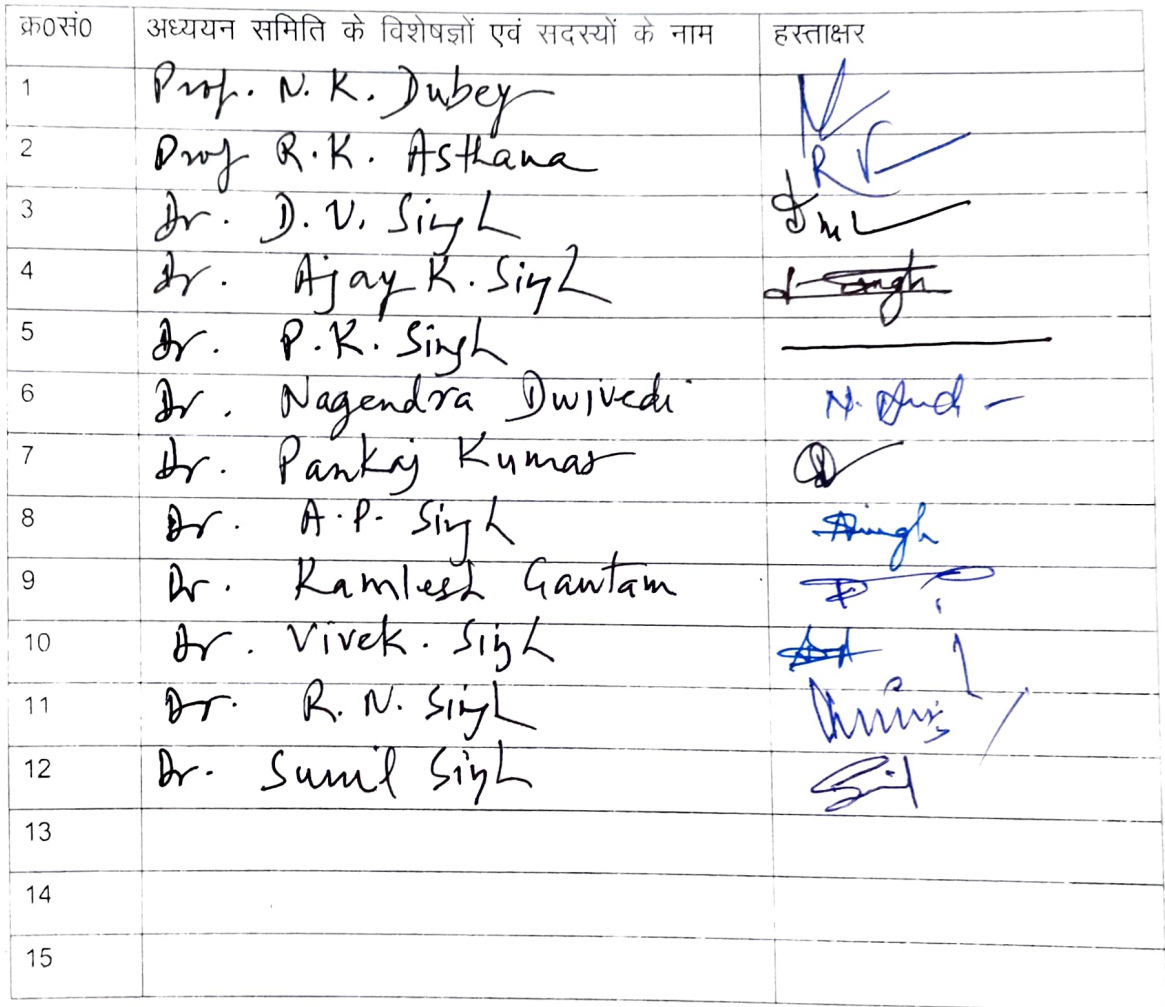 क्र0सं0 अध्ययन समिति के विशेषज्ञों एवं सदस्यों के नाम हस्ताक्षर
1 Prof. N. K. Dubey
2 Prof R.K. Asthana
3 Dr. D.V. Singh
4 Dr. Ajay K. Singh Singh
5 Dr. P.K. Singh
6 Dr. Nagendra Dwivedi
7 Dr. Pankaj Kumar
8 Dr. A.P. Singh
9 Dr. Kamlesh Gautam
10 Dr. Vivek. Singh
11 Dr. R.N. Singh
12 Dr. Sunil Singh
13
14
15